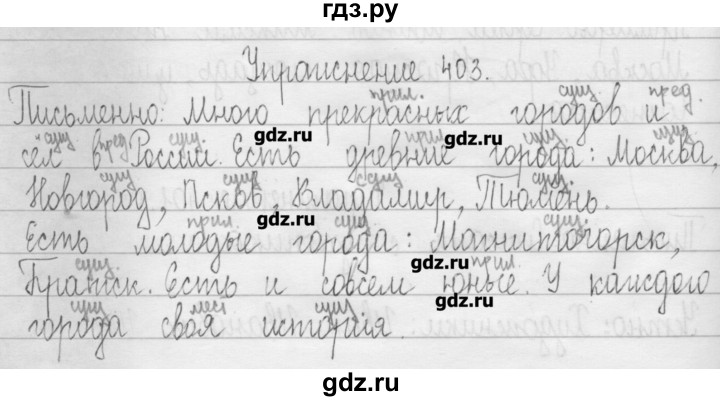 гдз.ру
Упражнение 403.
прил. сущ. пред.
Письменно: Много прекрасных городов и
сущ. пред. сущ. прил. сущ. сущ.
gdz.ru gdz.ru
сёл в России. Есть древние города: Москва,
сущ. сущ. сущ. сущ.
Новгород, Псков, Владимир, Тюмень.
прил. сущ. сущ.
gdz.ru
Есть молодые города: Магнитогорск,
сущ. прил.
gdz.ru gdz.ru
Братск. Есть и совсем юные. У каждого
сущ. мест. сущ.
города своя история.
gdz.ru